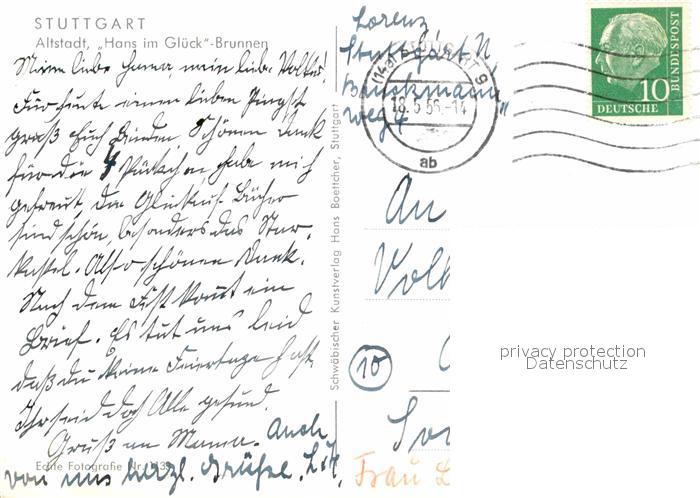 STUTTGART
Altstadt, „Hans im Glück"-Brunnen
Meine liebe Hanna, mein lieber Volker!
Für heute einen lieben Pfingst
gruß Euch beiden. Schönen Dank
für die 4 Päckchen, habe mich
gefreut, die Glückwsch. Bücher
sind schön, besonders das
Also schönen Dank.
Nach dem Fest kommt ein
Brief. Es tut uns leid
daß du keine Feiertage hast.
Ihr seid doch Alle gesund.
Gruß an Mama. Auch
von uns herzl. Grüße.
Echte Fotografie Nr.
Schwäbischer Kunstverlag Hans Boettcher, Stuttgart
Lorenz
Stuttgart N
weg 4
(14a) STUTTGART 9
18.5.56.-14
ab
10
DEUTSCHE
BUNDESPOST
An
Volk
10
Frau L
privacy protection
Datenschutz